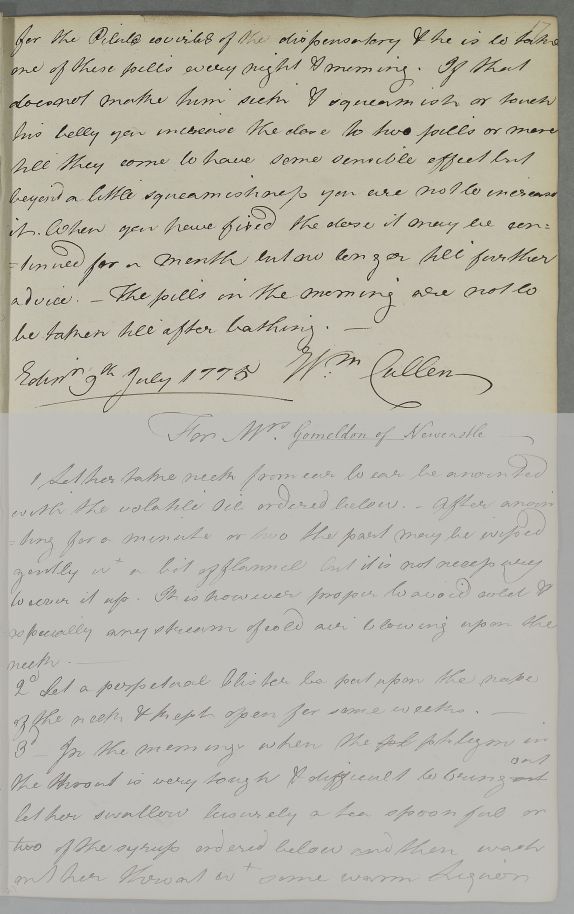 for the Pilulæ cœruleæ of the dispensatory & he is to take
one of these pills every night & morning. If that
does not make him sick & squeamish or touch
his belly you increase the dose to two pills or more
till they come to have some sensible effect but
beyond a little squeamishness you are not to increase
it. When you have fixed the dose it may be con=
=tinued for a month but no longer till further
advice. _ The pills in the morning are not to
be taken till after bathing. _
Edinr 9th July 1775 Wm Cullen
For Mrs. Gomeldon of Newcastle
1 Let her take neck from ear to ear be anointed
with the volatile Oil ordered below. _ After anoin
=ting for a minute or two the part may be wiped
gently wt a bit of flannel but it is not necessary
to cover it up. It is however proper to avoid cold &
especially any stream of cold air blowing upon the
neck. _
2d Let a perpetual blister be put upon the nape
of the neck & kept open for some weeks. _
3d _ In the mornings when the phlegm in
the throat is very tough & difficult to bring out
let her swallow leisurely a tea spoonful or
two of the syrup ordered below and then wash
out her throat wt some warm Liquor